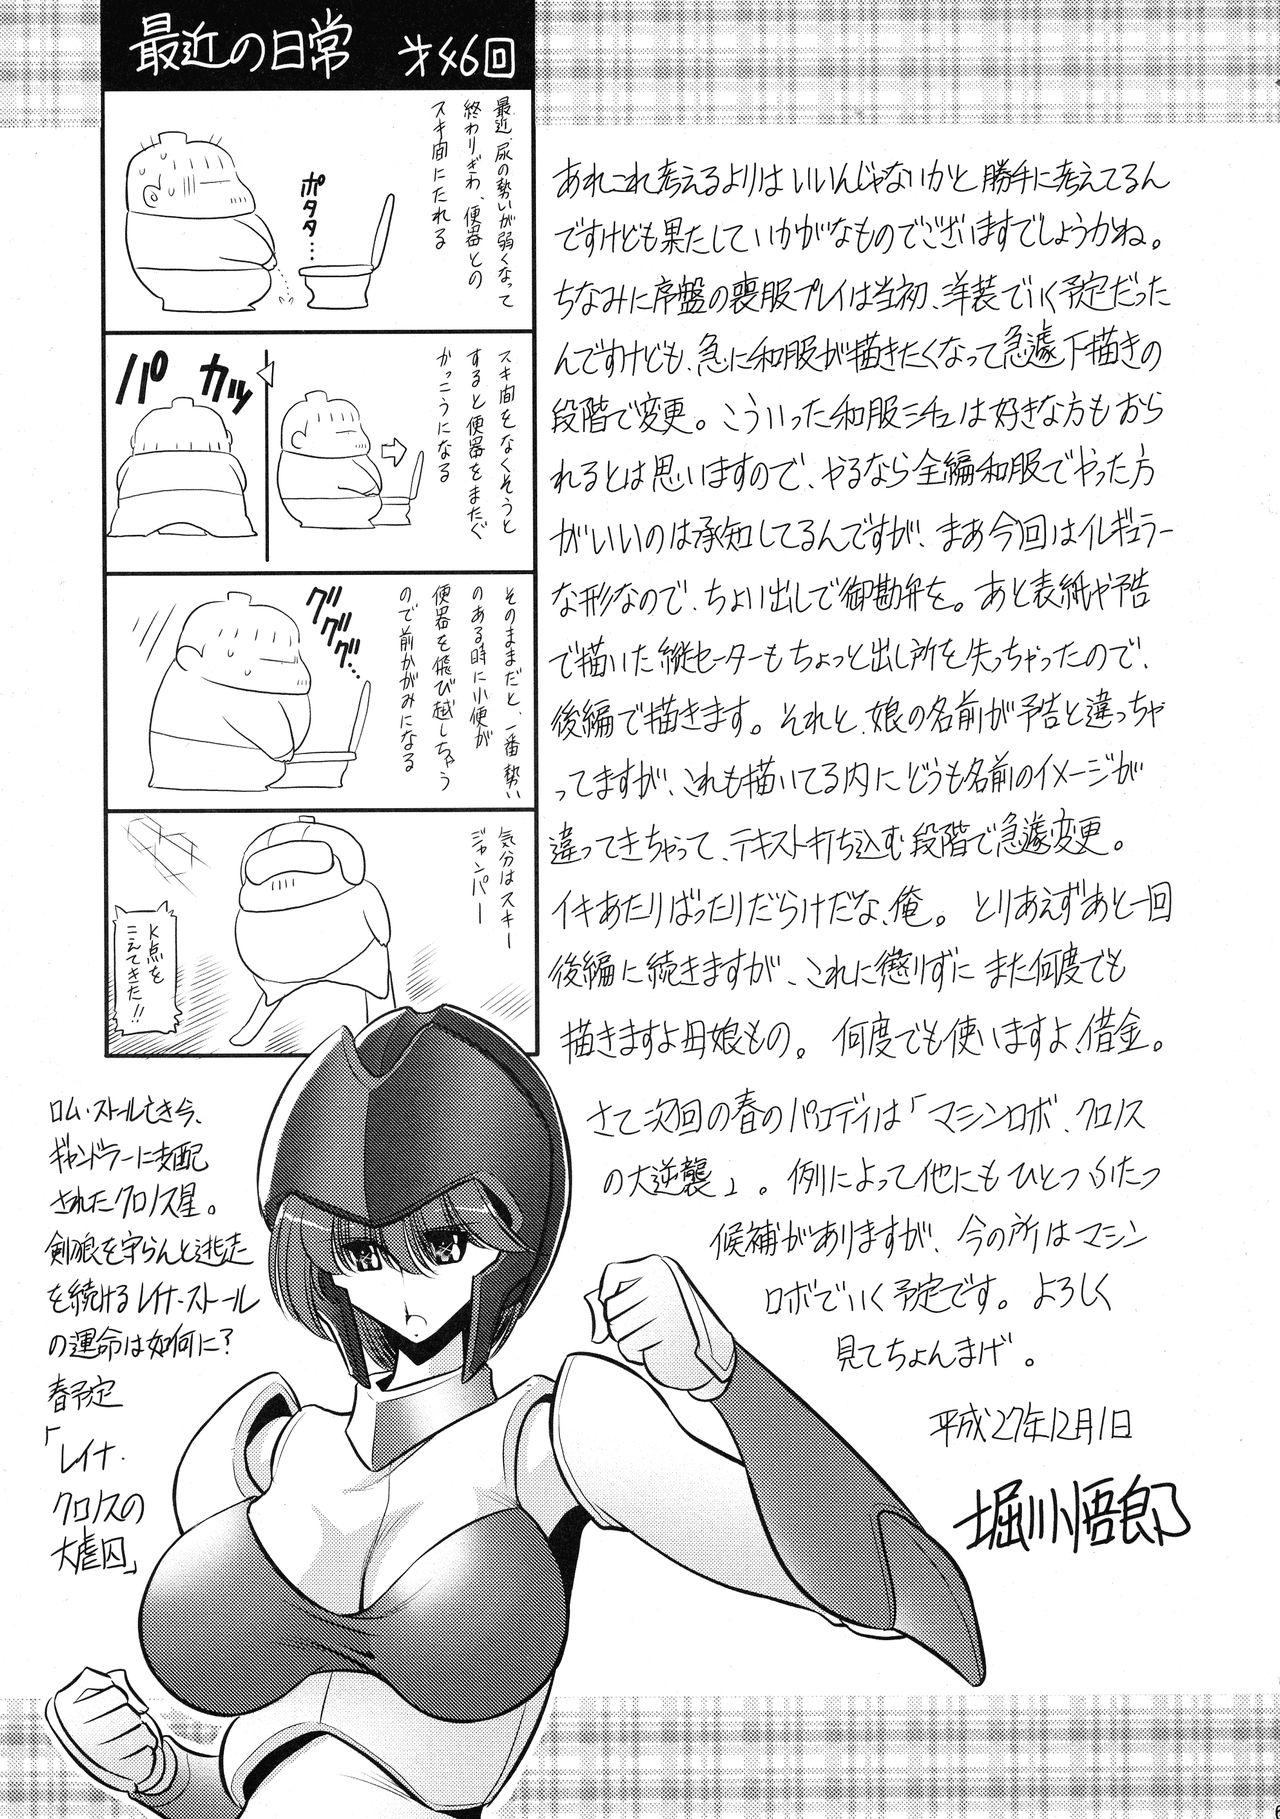 最近の日常 才46回
最近、尿の勢いが弱くなって
終わりぎわ、便器との
スキ間にたれる
ポタタタ…
スキ間をなくそうと
すると便器をまたぐ
かっこうになる
パカッ
そのままだと、一番勢い
のある時に小便が
便器を飛び越しちゃう
ので前かがみになる
ググググ…
気分はスキー
ジャンパー
K点を
こえてきた!!
あれこれ考えるよりはいいんじゃないかと勝手に考えてるん
ですけども果たしていかがなものでございますでしょうかね。
ちなみに序盤の喪服プレイは当初、洋装でいく予定だった
んですけども、急に和服が描きたくなって急遽下描きの
段階で変更。こういった和服シチュは好きな方もおら
れるとは思いますので、やるなら全編和服でやった方
がいいのは承知してるんですが、まあ今回はイレギュラー
な形なので、ちょい出しで御勘弁を。あと表紙や予告
で描いた縦セーターもちょっと出し所を失っちゃったので、
後編で描きます。それと、娘の名前が予告と違っちゃ
ってますが、これも描いてる内にどうも名前のイメージが
違ってきちゃって、テキスト打ち込む段階で急遽変更。
イキあたりばったりだらけだな、俺。とりあえずあと一回
後編に続きますが、これに懲りずにまた何度でも
描きますよ母娘もの。何度でも使いますよ、借金。
さて次回の春のパロディは「マシンロボ、クロノス
の大逆襲」。例によって他にもひとつふたつ
候補がありますが、今の所はマシン
ロボでいく予定です。よろしく
見てちょんまげ。
平成27年12月1日
堀川悟郎
ロム・ストール亡き今、
ギャンドラーに支配
されたクロノス星。
剣狼を守らんと逃走
を続けるレイナ・ストール
の運命は如何に?
春予定
「レイナ・
クロノスの
大虐囚」